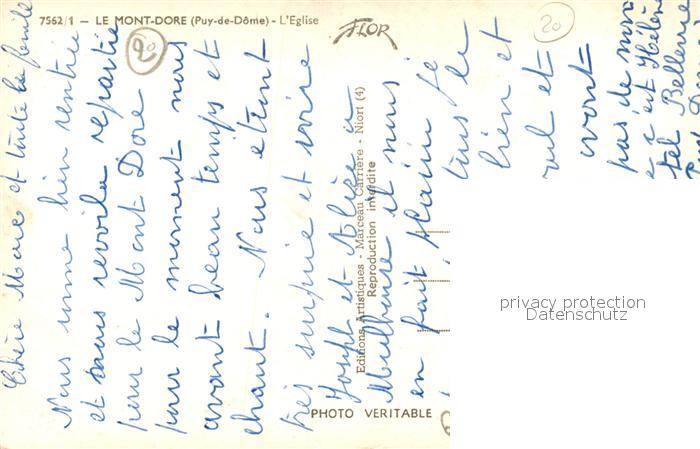 7562/1 - LE MONT-DORE (Puy-de-Dôme) - L'Eglise
FLOR
20
20
Chère Marc et toute la famille
Nous somme bien rentrée
et nous revoila repartie
pour le Mont Dore
pour le moment nous
avont beau temps et
chaut. Nous etiont
très surprie et voire
Joseph et Alice a
Mulhouse il nous
en fait plaisir je
tous le
bien et
vul et
avont
pas de
Hélène
tel Bellevue
Editions Artistiques - Marceau Carrière - Niort (4)
Reproduction interdite
PHOTO VERITABLE
privacy protection
Datenschutz